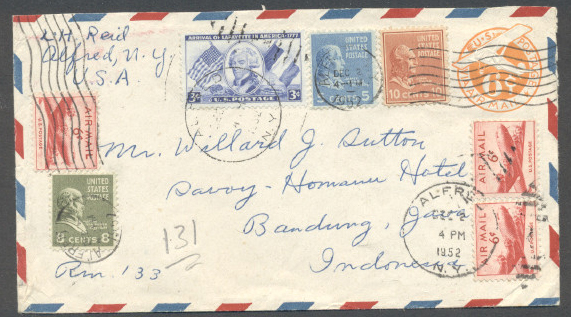 L.H. Reid
Alfred, N.Y
U.S.A
ARRIVAL OF LAFAYETTE IN AMERICA-1777
3¢ U.S. POSTAGE 3¢
UNITED
STATES
POSTAGE
5
UNITED
STATES
POSTAGE
10 CENTS 10
U.S. POSTAGE
AIR MAIL
AIR MAIL
6¢
U.S. POSTAGE
UNITED
STATES
POSTAGE
8 CENTS 8
Mr. Willard J. Sutton
Savoy-Homann Hotel
Bandung, Java
Indonesia
Rm. 133
131
AIR MAIL
6¢
U.S. POSTAGE
AIR MAIL
6¢
U.S. POSTAGE
ALFRED
DEC 2
4 PM
1952
N.Y.